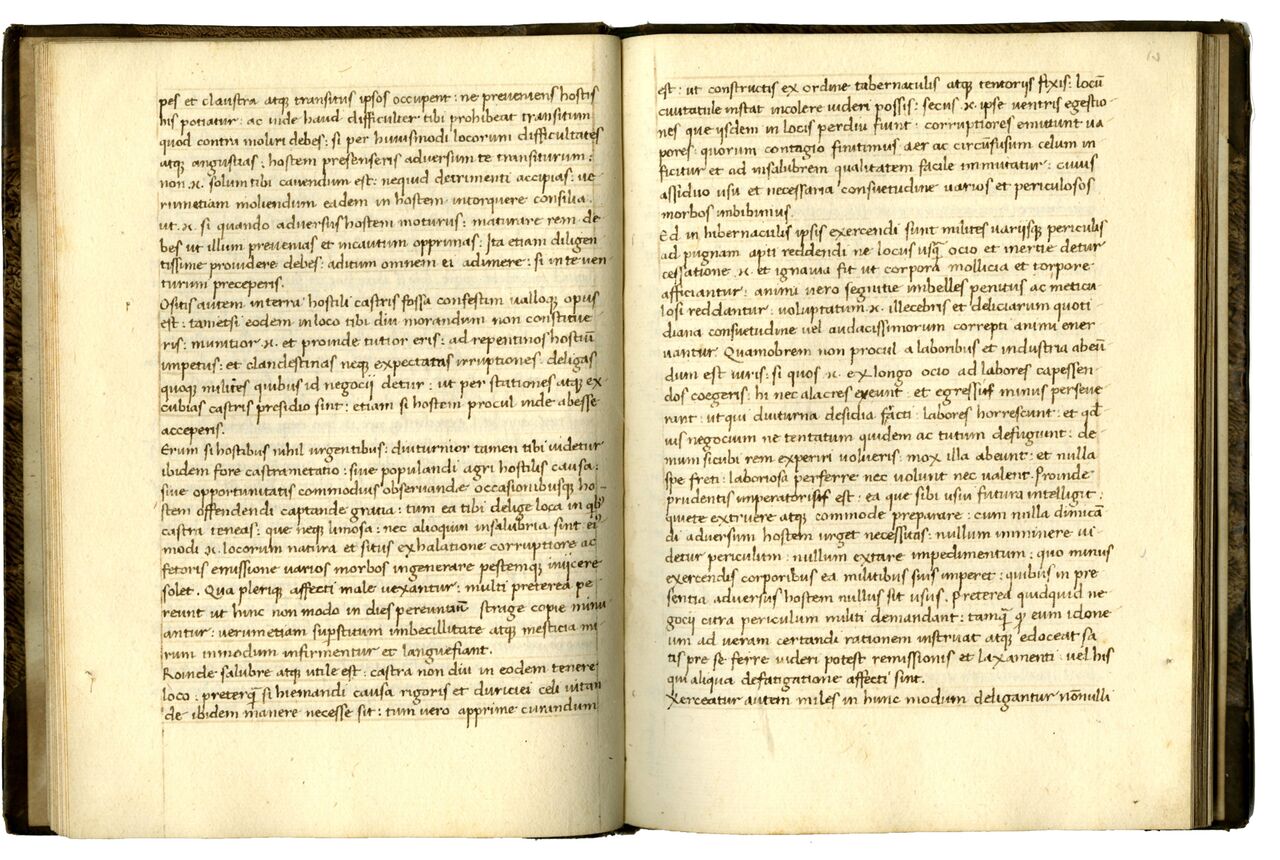 pes et claustra atq; transitus ipsos occupent: ne preveniens hostis
his potiatur: ac inde haud difficulter tibi prohibeat transitum
quod contra moliri debes: si per huiusmodi locorum difficultates
atq; angustias; hostem presenseris adversum te transiturum:
non .n. solum tibi cavendum est: nequid detrimenti accipias: ve
rumetiam moliendum eadem in hostem intorquere consilia.
ut .n. si quando adversus hostem moturus: maturare rem de
bes ut illum prevenias et incautum opprimas: Ita etiam diligen
tissime providere debes: aditum omnem ei adimere: si in te ven
turum preceperis.
Ositis autem in terra hostili castris fossa confestim valloq; opus
est: tametsi eodem in loco tibi diu morandum non constitue
ris: munitior .n. et proinde tutior eris: ad repentinos hostiū
impetus: et clandestinas neq; expectatas irruptiones: deligas
quoq; milites quibus id negocii detur: ut per stationes atq; ex
cubias castris presidio sint: etiam si hostem procul inde abesse
acceperis.
Erum si hostibus nihil urgentibus: diuturnior tamen tibi videtur
ibidem fore castrametatio: sive populandi agri hostilis causa:
sive opportunitatis commodius observandæ occasionibusq; ho
stem offendendi captande gratia: tum ea tibi delige loca in qb9
castra teneas: que neq; limosa: nec alioquin insalubria sint ei9
modi .n. locorum natura et situs exhalatione corruptiore ac
fetoris emissione varios morbos ingenerare pestemq; iniicere
solet. Qua pleriq; affecti male vexantur: multi preterea pe
reunt ut hunc non modo in dies pereuntiū strage copie minu
antur: verumetiam supstitum imbecillitate atq; mesticia mi
rum inmodum infirmentur et languefiant.
Roinde salubre atq; utile est: castra non diu in eodem tenere
loco: preterq̄ si hiemandi causa rigoris et duriciei celi vitan
de ibidem manere necesse sit: tum vero apprime curandum
est: ut constructis ex ordine tabernaculis atq; tentoriis fixis: locū
civitatule instat incolere videri possis: secus .n. ipse ventris egestio
nes que iisdem in locis perdiu fiunt: corruptiores emittunt va
pores: quorum contagio finitimus aer ac circūfusum celum in
ficitur et ad insalubrem qualitatem facile immutatur: cuius
assiduo usu et necessaria consuetudine varios et periculosos
morbos imbibimus.
Ed in hibernaculis ipsis exercendi sunt milites variisq; periculis
ad pugnam apti reddendi ne locus usq̄ ocio et inertie detur
cessatione .n. et ignavia fit ut corpora mollicia et torpore
afficiantur: animi vero segnitie imbelles penitus ac meticu
losi reddantur: voluptatum .n. illecebris et deliciarum quoti
diana consuetudine vel audacissimorum correpti animi ener
vantur. Quamobrem non procul a laboribus et industria abeū
dum est viris: si quos .n. ex longo ocio ad labores capessen
dos coegeris: hi nec alacres exeunt: et egressi minus perseve
rant: ut qui diuturna desidia facti: labores horrescunt: et qd
vis negocium ne tentatum quidem ac tutum defugiunt: de
mum sicubi rem experiri volueris: mox illa abeunt: et nulla
spe freti: laboriosa perferre nec volunt nec valent. Proinde
prudentis imperatoris est: ea que sibi usui futura intelligit:
quiete extruere atq; commode preparare: cum nulla dimicā
di adversum hostem urget necessitas: nullum imminere vi
detur periculum: nullum extare impedimentum: quo minus
exercendis corporibus ea militibus suis imperet: quibus in pre
sentia adversus hostem nullus sit usus. Preterea quidquid ne
gocii citra periculum militi demandant: tamq̄ qd eum idone
um ad veram certandi rationem instruat atq; edoceat sa
tis pre se ferre videri potest remissionis et laxamenti: vel his
qui aliqua defatigatione affecti sint.
Xerceatur autem miles in hunc modum deligantur nōnulli